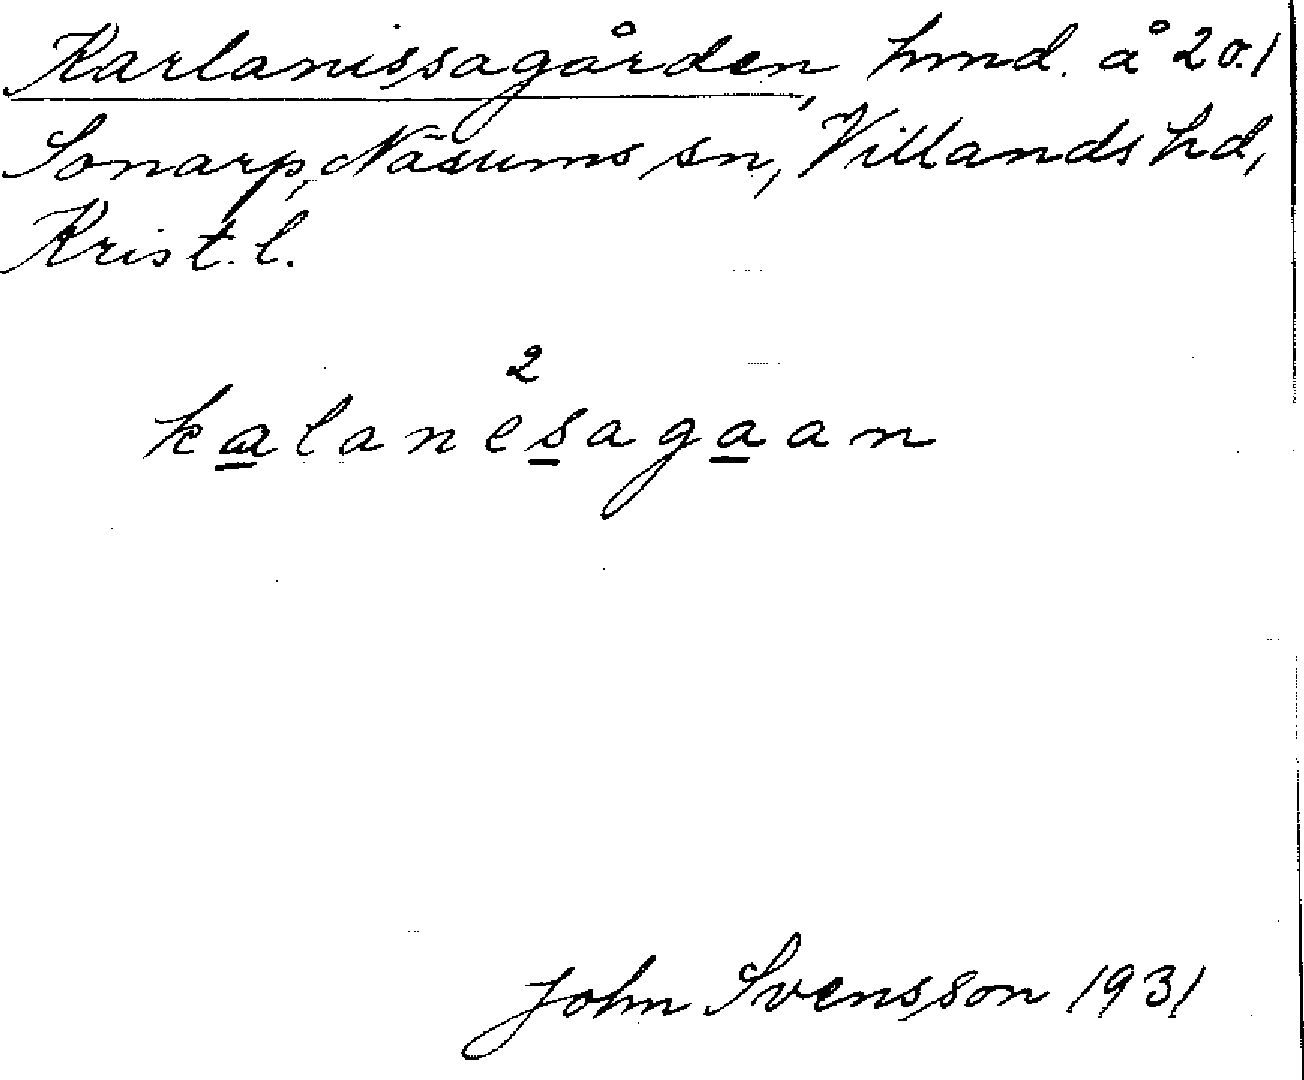 Karlanissagården, hmd. å 2σ.1
Sonarp, Näsums sn, Villands hd,
Krist. l.
2
kalanesagaan
John Svensson 1931